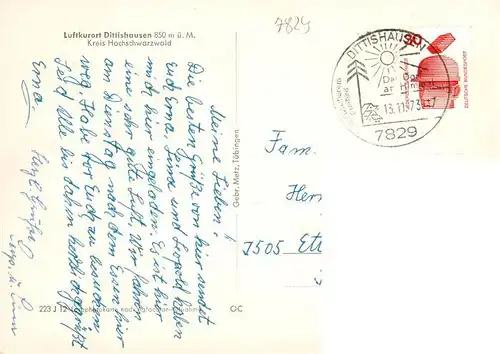 Luftkurort Dittishausen 850 m ü. M.
Kreis Hochschwarzwald
7829
Meine Lieben!
Die besten Grüße von hier sendet
Euch Erna. und Leopold haben
mich hier eingeladen. Es ist hier
eine sehr gute Luft. Wir fahren
am Dienstag nach dem Essen hier
weg. Habe vor Euch zu besuchen
Seid Alle bis dahin herzlich gegrüßt
Erna
Herzl. Grüße
Gebr. Metz, Tübingen
DITTISHAUSEN
13.11.73-17
7829
DEUTSCHE BUNDESPOST
Fam.
Herr
7505 Ett
223 J 12
OC